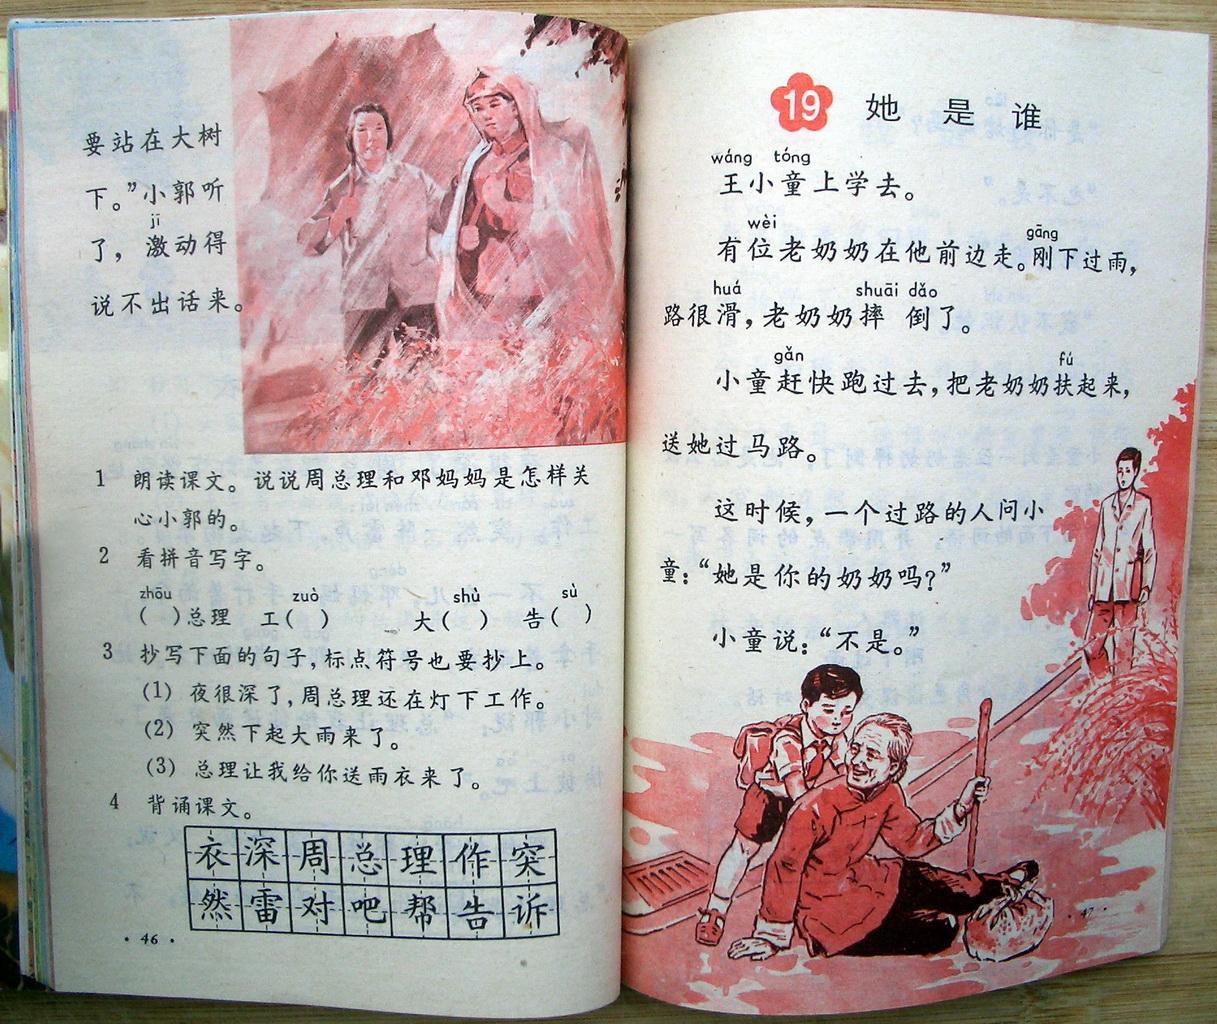 要站在大树
下。”小郭听
jī
了，激动得
说不出话来。
1 朗读课文。说说周总理和邓妈妈是怎样关
心小郭的。
2 看拼音写字。
zhōu zuò shù sù
( )总理 工( ) 大( ) 告( )
3 抄写下面的句子，标点符号也要抄上。
(1) 夜很深了，周总理还在灯下工作。
(2) 突然下起大雨来了。
(3) 总理让我给你送雨衣来了。
4 背诵课文。
衣深周总理作突
然雷对吧帮告诉
·46·
19 她是谁
wáng tóng
王小童上学去。
wèi gāng
有位老奶奶在他前边走。刚下过雨，
huá shuāi dǎo
路很滑，老奶奶摔倒了。
gǎn fú
小童赶快跑过去，把老奶奶扶起来，
送她过马路。
这时候，一个过路的人问小
童：“她是你的奶奶吗？”
小童说：“不是。”
·47·